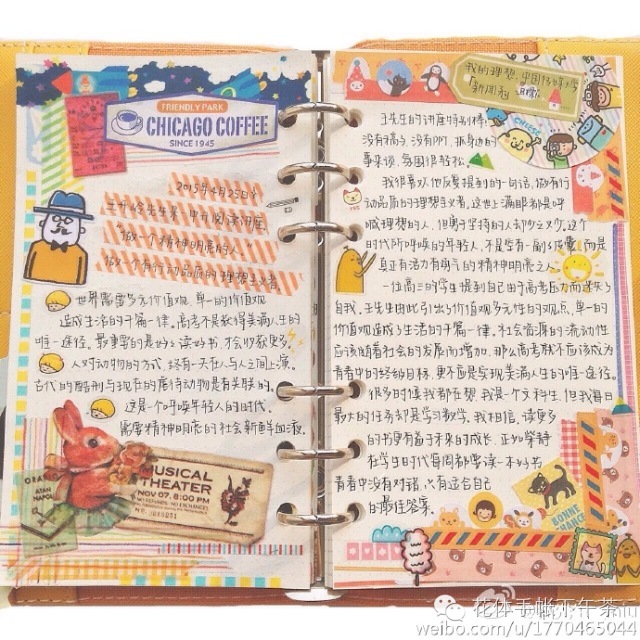 FRIENDLY PARK
CHICAGO COFFEE
SINCE 1945
2015年4月25日
王开岭先生第一中学阅读讲座
"做一个精神明亮的人"
做一个有行动品质的理想主义者
世界需要多元价值观,单一的价值观
造成生活的千篇一律,高考不是获得美满人生的
唯一途径,最重要的是好读书,才会收获更多。
人对动物的方式,终有一天在人与人之间上演。
古代的酷刑与现在的虐待动物是有关联的。
这是一个呼唤年轻人的时代,
需要精神明亮的社会新鲜血液。
MUSICAL
THEATER
NOV 07. 8:00 PM
我的理想:中国传媒大学
新闻系
CHEESE
王先生的讲座特别棒,
没有稿子,没有PPT,抓身边的
事来谈,氛围很轻松。
我很喜欢他反复提到的一句话,做有行
动品质的理想主义者,这世上满眼都是呼
喊理想的人,但勇于坚持的人去少之又少,这个
时代所呼唤的年轻人,不是空有一副好皮囊,而是
真正有活力有朝气的精神明亮之人。
一位高三的学生提到自己由于高考压力而迷失了
自我,王先生由此引出了价值观多元性的观点,单一的
价值观造成了生活的千篇一律,社会资源的流动性
应该随着社会的发展而增加,那么高考就不应该成为
青春中的终极目标,更不应是实现美满人生的唯一途径。
很多时候我都在想,我是一个文科生,但我每日
最大的任务却是学习数学。我相信,读更多
的书更有益于未来的成长,正如坚持
在学生时代每周都要读一本好书
青春中没有对错,只有适合自己
的最佳答案。
BONNE
CHANCE
花体手帐下午茶
weibo.com/u/1770465044